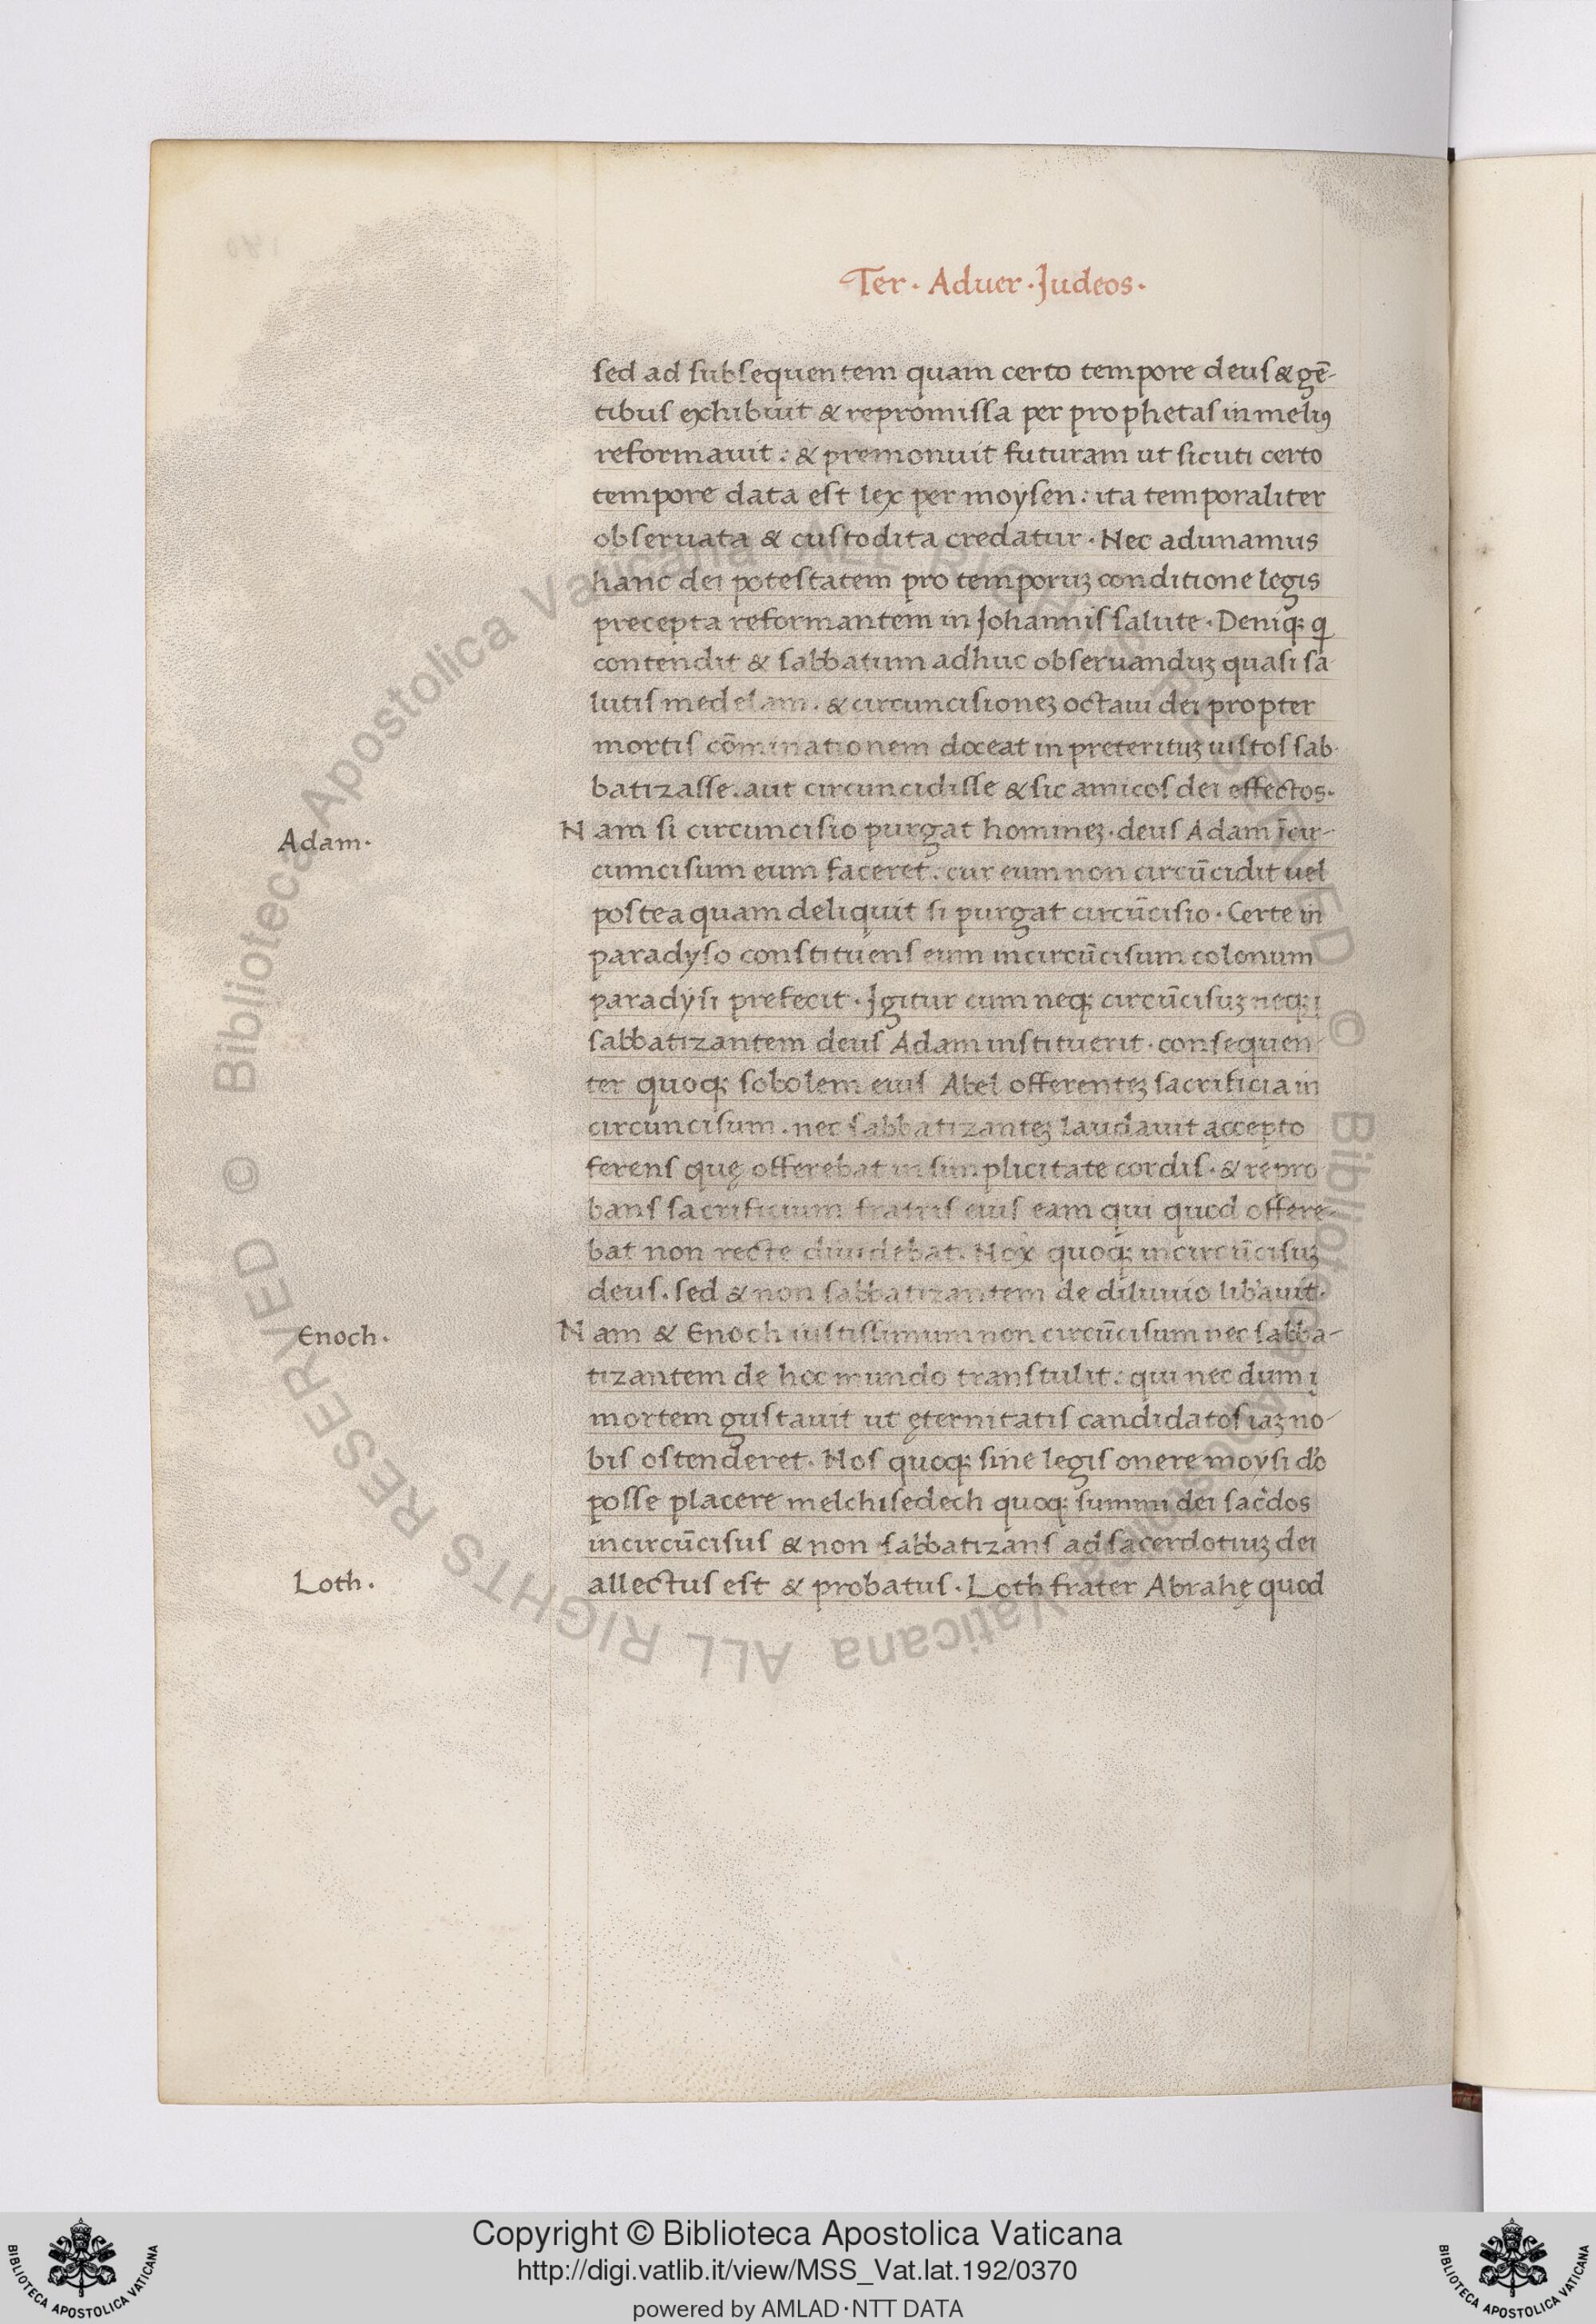 Ter · Aduer · Judeos ·
sed ad subsequentem quam certo tempore deus & gē-
tibus exhibuit & repromissa per prophetas in meliꝰ
reformauit : & premonuit futuram ut sicuti certo
tempore data est lex per moysen : ita temporaliter
obseruata & custodita credatur · Nec adunamus
hanc dei potestatem pro temporuꝫ conditione legis
precepta reformantem in Johannis salute · Deniqꝫ q
contendit & sabbatum adhuc obseruanduꝫ quasi sa
lutis medelam . & circuncisioneꝫ octaui dei propter
mortis cōminationem doceat in preterituꝫ iustos sab-
batizasse . aut circuncidisse & sic amicos dei effectos ·
Adam ·
Nam si circuncisio purgat homineꝫ · deus Adam īcir-
cumcisum eum faceret . cur eum non circūcidit uel
postea quam deliquit si purgat circūcisio · Certe in
paradyso constituens eum incircūcisum colonum
paradysi prefecit · Igitur cum neqꝫ circūcisuꝫ neqꝫ
sabbatizantem deus Adam instituerit · consequen
ter quoqꝫ sobolem eius Abel offerenteꝫ sacrificia in
circuncisum . nec sabbatizanteꝫ laudauit accepto
ferens quę offerebat in simplicitate cordis · & repro
bans sacrificium fratris eius eam qui quod offere
bat non recte diuidebat . Nox quoqꝫ incircūcisuꝫ
deus . sed & non sabbatizantem de diluuio lib'auit ·
Enoch ·
Nam & Enoch iustissimum non circūcisum nec sabba-
tizantem de hoc mundo transtulit : qui nec dum
mortem gustauit ut ęternitatis candidatos iaꝫ no-
bis ostenderet · Nos quoqꝫ sine legis onere moysi d'o
posse placere melchisedech quoqꝫ summi dei sac'dos
incircūcisus & non sabbatizans ad sacerdotiuꝫ dei
Loth ·
allectus est & probatus · Loth frater Abrahę quod
© Biblioteca Apostolica Vaticana ALL RIGHTS RESERVED © Biblioteca Apostolica Vaticana ALL RIGHTS RESERVED
Copyright © Biblioteca Apostolica Vaticana
http://digi.vatlib.it/view/MSS_Vat.lat.192/0370
powered by AMLAD·NTT DATA
BIBLIOTECA APOSTOLICA VATICANA
BIBLIOTECA APOSTOLICA VATICANA